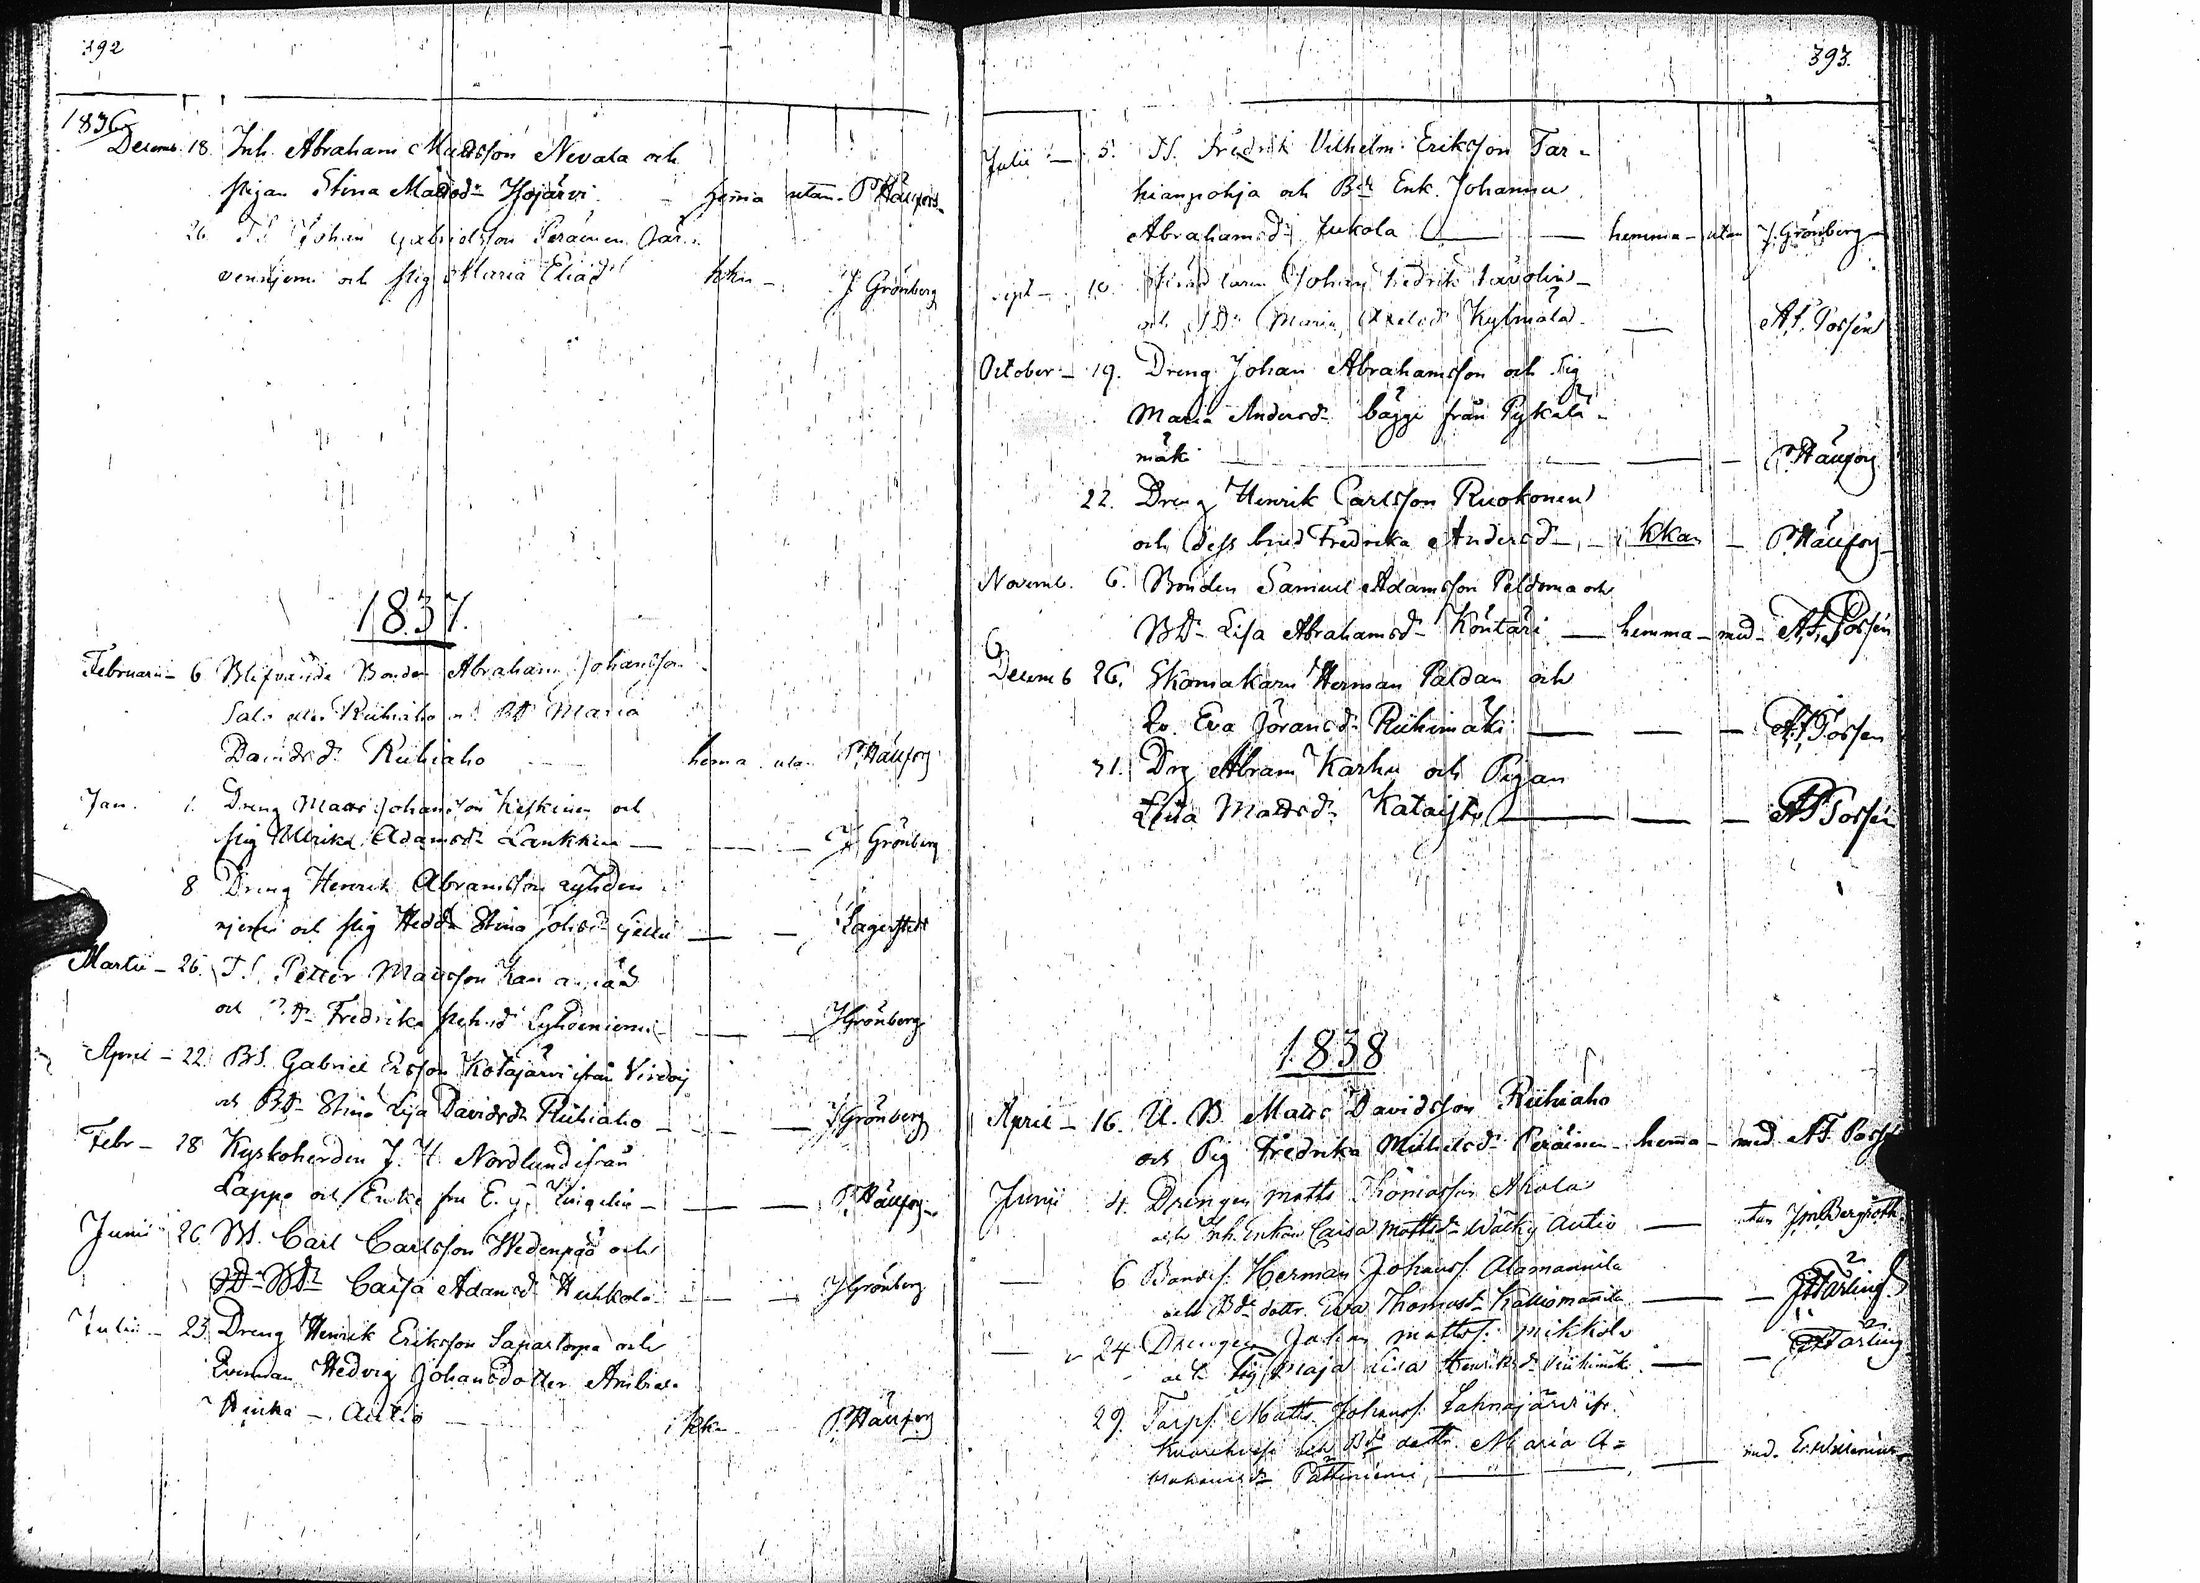 392
1836
Decemb. 18. Inh. Abraham Mattsson Nevala och
pigan Stina Mattsdr Isojärvi - hemma utan - P Häufog
26. TS. Johan Gabrielsson Peräinen Jär-
venniemi och pig Maria Eliasdr kkn - J Grönberg
1837.
Februarii - 6 Blifvande Bonden Abraham Johansson
Salo eller Riihiaho BD Maria
Davidsdr Riihiaho hemma utan P Häufog
Jan. 1. Dreng Matts Johansson Keskinen och
pig Ulrika Adamsdr Lankkinen — — J Grönberg
8 Dreng Henrik Abramsson Lyhden
njemi och pig Hedda Stina Johsdr — — Lagerstedt
Martii - 26. TS. Petter Mattsson
och Fredrika Lyhdeniemi — — J Grönberg
April - 22. BS. Gabriel Ersson Kotajärvi ifrån Virdois
och BD Stina Lisa Davidsdr Riihiaho — — J Grönberg
Febr - 28 Kyrkoherden J. H. Nordlund ifrån
Lappo och Enke fru E. — — P Häufog
Junii 26. BS. Carl Carlsson Wedenpää och
BDr Caisa Adamsdr Huhkola — — J Grönberg
Julii - 23. Dreng Henrik Eriksson Sapastompa och
Qvinnan Hedvig Johansdotter
Autio i kka P. Häufog
393.
Julii — 5. TS. Fredrik Vilhelm Eriksson Tar-
hianpohja och Bdr Enk. Johanna
Abrahamsdr Jukola — hemma - utan J. Grönberg
Sept - 10. Johan Fredrik
och Maria Axelsdr Kylmälä — A. F. Tossén
October - 19. Dreng Johan Abrahamsson och Pig
Maria Andersdr bägge från Pykälä-
mäki — — — P Häufog
22. Dreng Henrik Carlsson Ruokonen
och dess brud Fredrika Andersdr - i kkan - P. Häufog
Novemb. 6. Bonden Samuel Adamsson Peldoma och
BDr Lisa Abrahamsdr Köntäri — hemma - med - A. F. Tossén
Decemb 26. Skomakarn Herman Paldan och
Qv. Eva Jöransdr Riihimäki — — — A. F. Tossén
31. Drg Abram Karhu och Pigan
Lena Mattsdr Kataisto — — — A F Tossén
1838
April - 16. U. B. Matts Davidsson Riihiaho
och Pig Fredrika Michelsdr Peräinen - hemma - med A F. Tossén
Junii 4. Drengen Matts Thomasson Akola
och Inh. Enkan Caisa Mattsdr Autio — utan J M Bergroth
— 6 Bondes. Herman Johanss. Alamannila
och Bde dottr. Eva Thomasdr Kalliomännikö — — J Färling
— 24 Drengen Johan Mattss. Mikkola
och Pig Maja Lisa Henriksdr — — J Färling
29. Torps. Matts Johanss. Lahnajärvi ifr.
och Bde dottr. Maria A=
brahamsdr Pättiniemi, — — med. Er. Wilenius